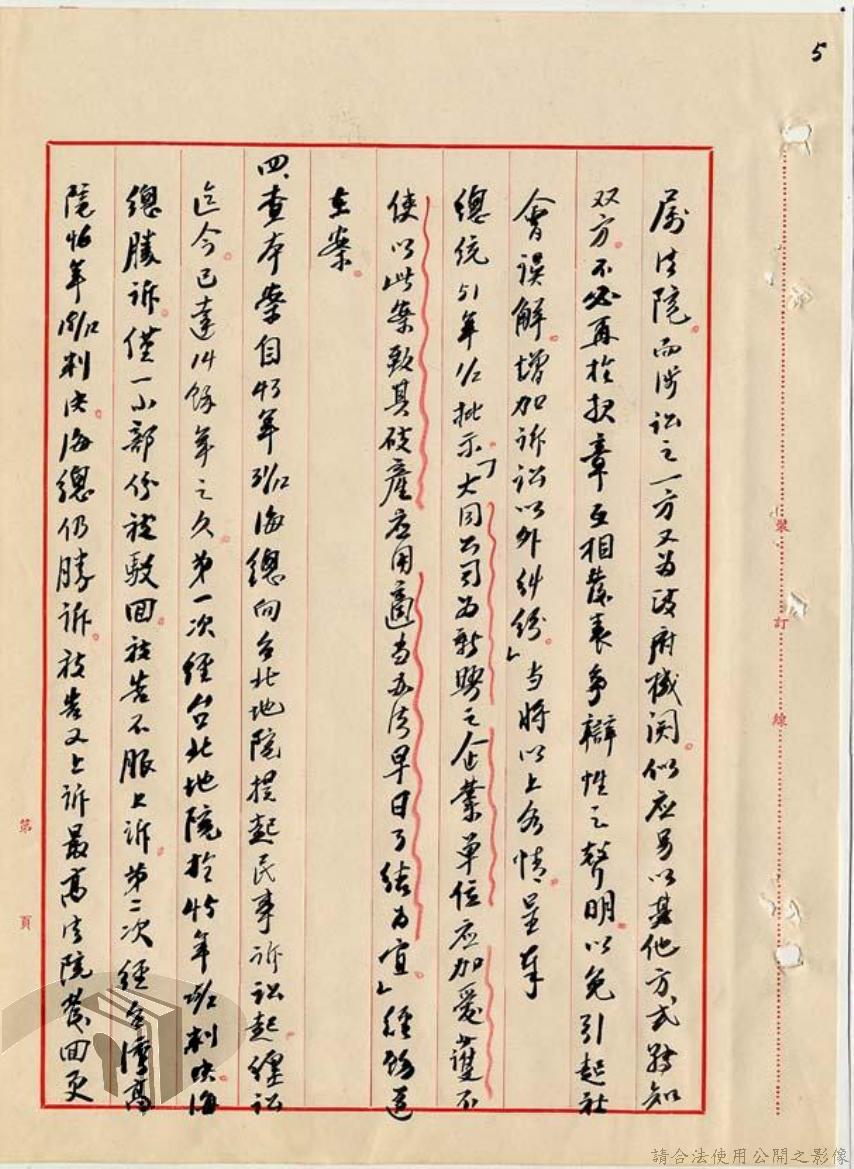 5
屬法院。而涉訟之一方又為政府機関。似應另以其他方式轉知
双方。不必再於报章互相發表争辯性之聲明。以免引起社
會误解。增加訴訟以外糾纷。」当將以上各情。呈奉
總统51年 批示。「大同公司為新興之企業單位应加爱護不
使以此案致其破產应用適当办法早日了结為宜。」經转送
在案。
四、查本案自43年 海總向台北地院提起民事訴訟起。缠訟
迄今。已達14餘年之久。第一次經台北地院於45年 判决海
總勝訴。僅一小部份被駁回。被告不服上訴。第二次經台灣高
院46年 判决。海總仍勝訴。被告又上訴最高法院發回更
裝
訂
線
第
頁
請合法使用公開之影像